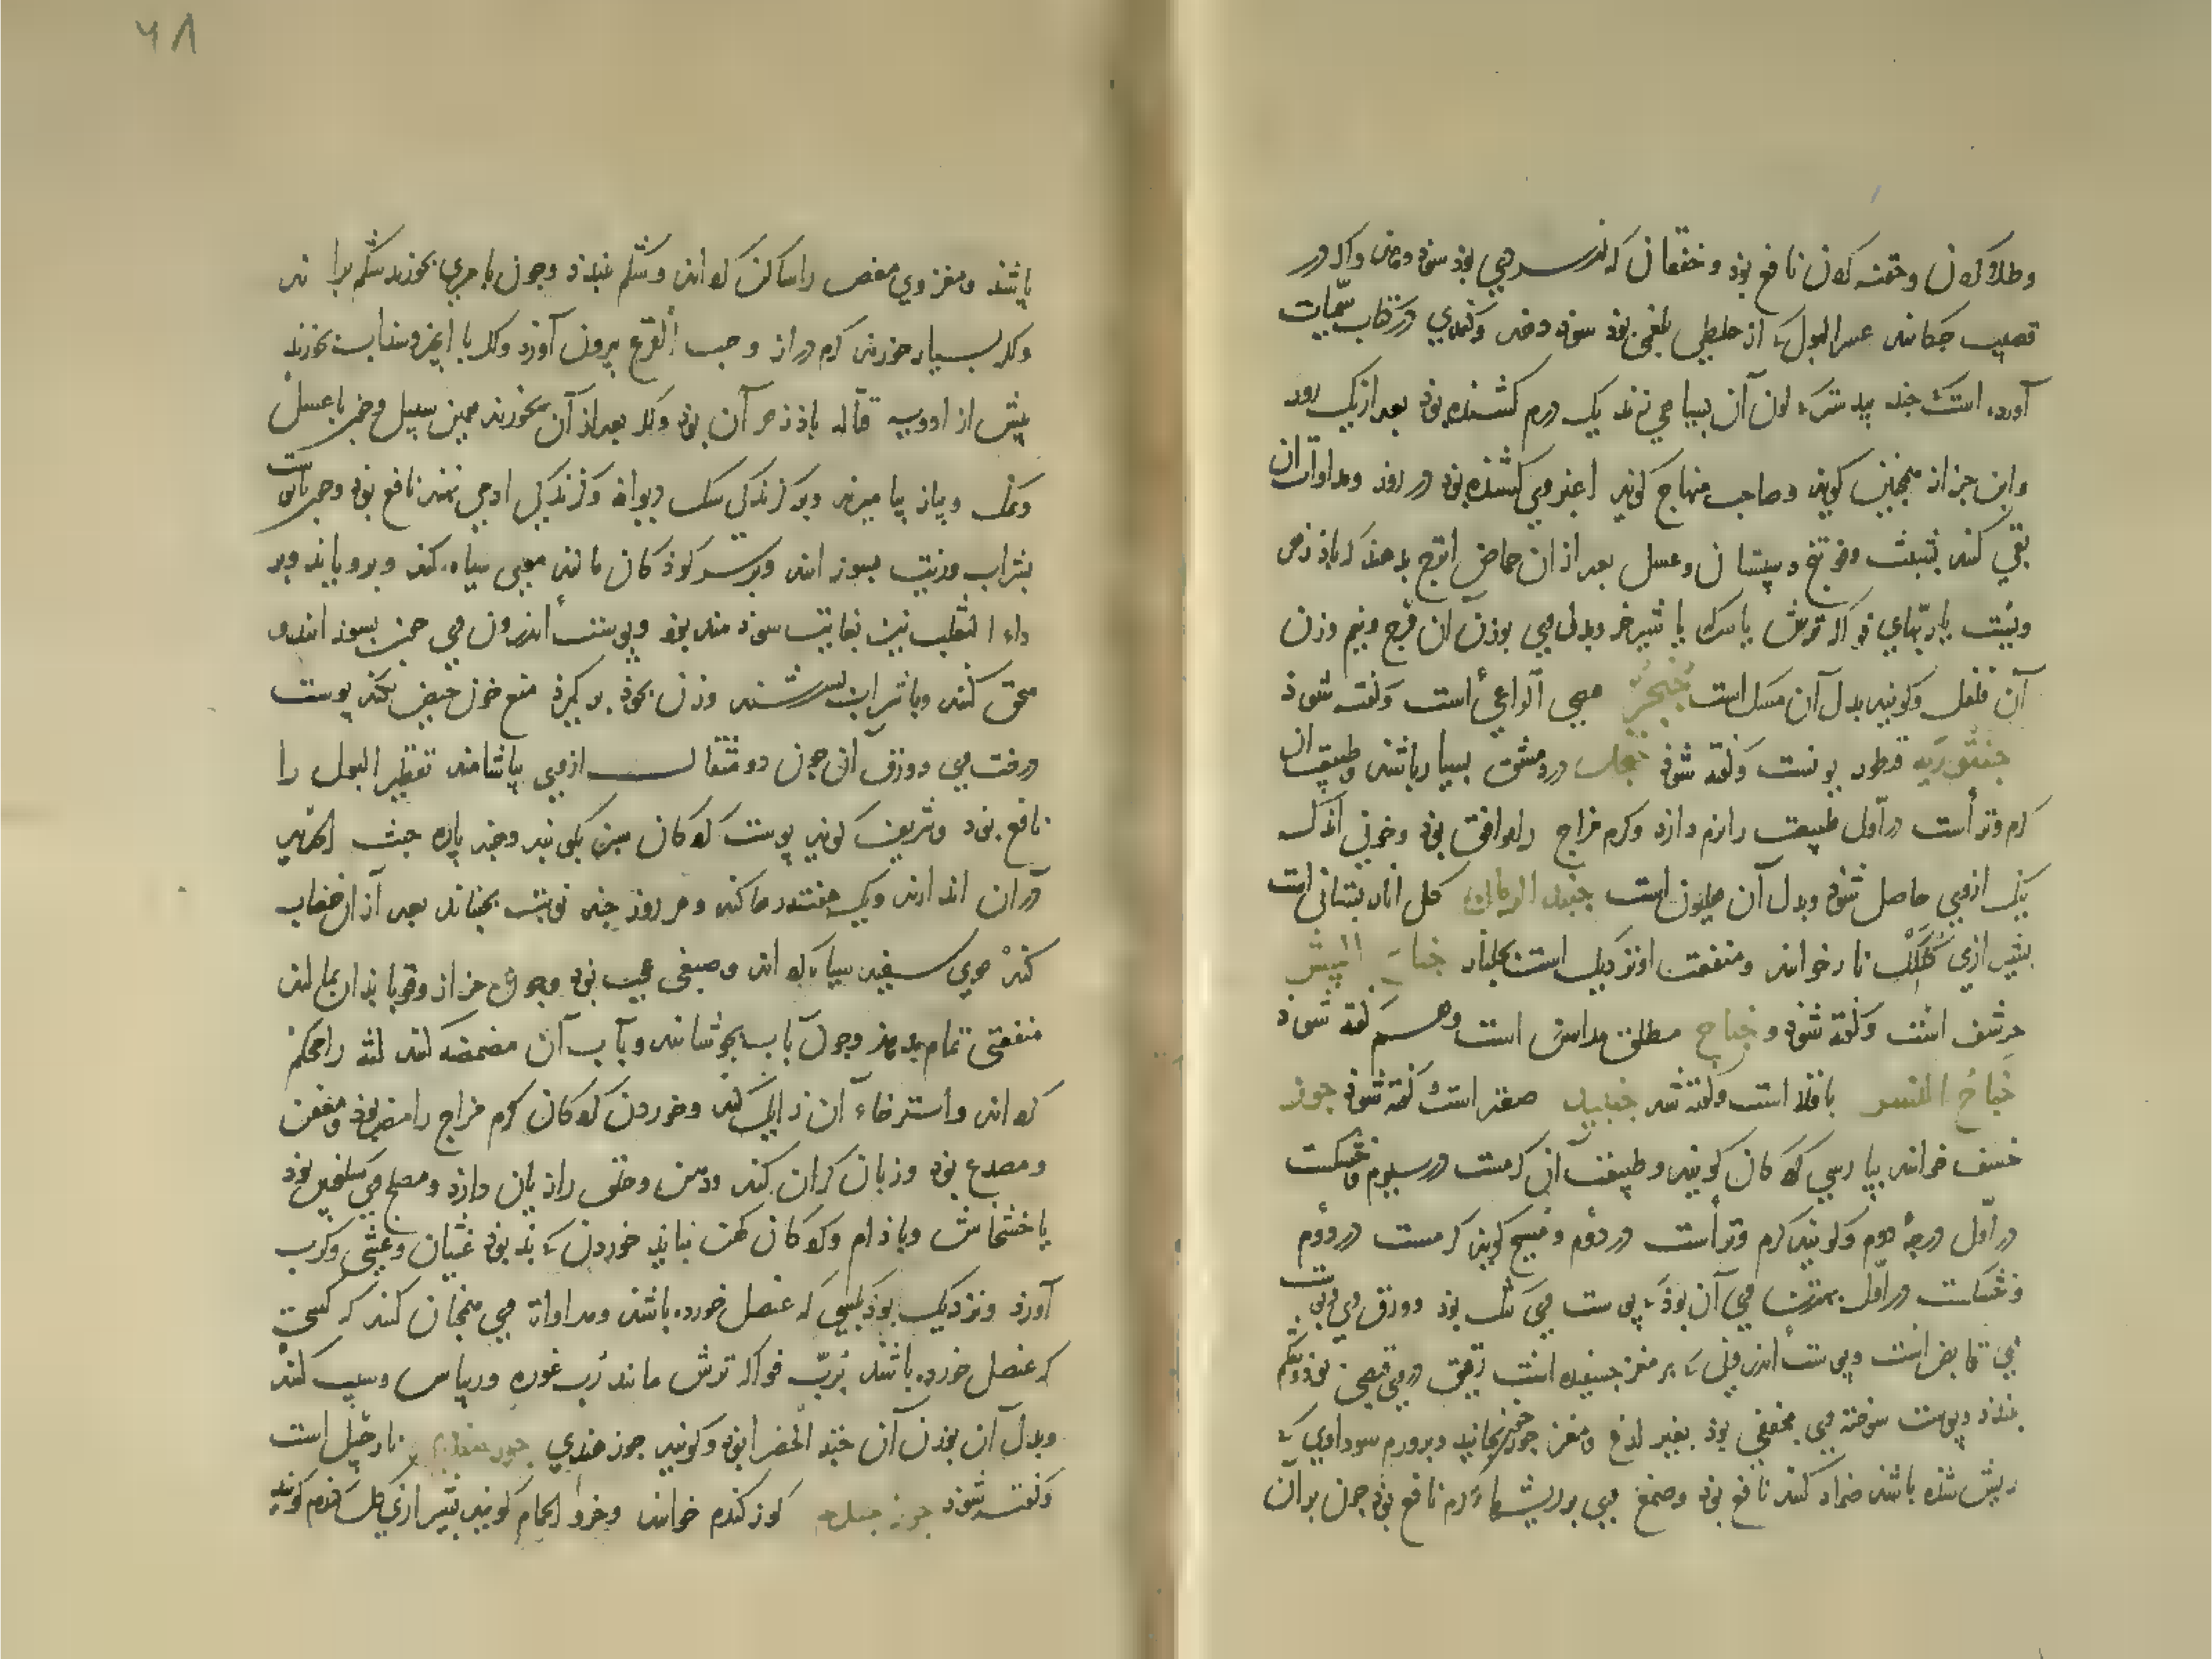 وطلا کردن وحقنه کردن نافع بود وخفقان که از سردی بود سود دهد واکر در
قضیب چکانند عسر البول که از خلطی بلغمی بود سود دهد وکندی در کتاب سمیات
آورده است که جند بیدستر که لون آن بسیاهی زند یک درم کشنده بود بعد از یک روز
واین جزاز منجنین کویند وصاحب منهاج کوید اغبر وی کشنده بود در روز ومداوات آن
بقی کنند بشبث وفوتنج وسپستان وعسل بعد از آن حماض اترج بدهند که باذزهر
ویست یا ربهای فواکه ترش یا سرکه یا شیر خر وبدل وی بوزن آن وج ونیم وزن
آن فلفل وکویند بدل آن مسک است جنجر عصی الراعی است وکفته شود
جنثوریه قنطوریونست وکفته شود جنجل در دمشق بسیار باشد وطبیعت آن
کرم وتر است در اول طبیعت را نرم دارد وکرم مزاج را موافق بود وخونی اندک
نیک از وی حاصل شود وبدل آن هلیون است جنبد الرمان کل انار بستانی است
بشیرازی کلک نار خوانند ومنفعت او نزدیک است بجلنار جناح البیش
حرشف است وکفته شود وجناح مطلق راسن است وهم کفته شود
جناح النسر باقلا است وکفته شد جنبیل صقر است کفته شود جوز
خسف خوانند بپارسی کردکان کویند وطبیعت آن کرمست در سیوم وخشکست
در اول درجه دوم وکویند کرم وتر است در دوم ومسیح کوید کرمست در دوم
وخشکست در اول بهترین وی آن بود که پوست وی تنک بود وورق وی وپوست
وی قابض است وپوست اندرونی که بر مغز چسبیده است رقیق در وی قبضی بود وشکم
ببندد وپوست سوخته وی مجففی بود بغیر لذع ومغز جوز چون بخایند وبر ورم سوداوی که
ریش شده باشد ضماد کنند نافع بود وصمغ وی بر ریشهاء کرم نافع بود چون بر آن
۶۸
پاشند ومغز وی مغص را ساکن کرداند وشکم ببندد وچون با مری بخورند شکم براند
واکر بسیار خورند کرم دراز وحب القرع بیرون آورد واکر با انجیر وسداب بخورند
پیش از ادویه قتاله باذزهر آن بود واکر بعد از آن بخورند همین سبیل وچون با عسل
ونمک وپیاز بیامیزند وبر کزندکی سک دیوانه وکزندکی ادمی نهند نافع بود وچون با پوست
بشراب وزیت بسوزانند وبر سر کودکان مالند موی سیاه کند وبرویاند وبر
داء الثعلب نیز بغایت سودمند بود وپوست اندرون وی چون بسوزانند و
سحق کنند وبا شراب بسرشند وزن بخود بر کیرد منع خون حیض بکند پوست
درخت وی وورق آن چون دو مثقال از وی بیاشامند تقطیر البول را
نافع بود وشریف کوید پوست کردکان سبز بکوبند وچند پاره خبث الحدید
در آن اندازند ویک هفته رها کنند وهر روز چند نوبت بجنبانند بعد از آن خضاب
کنند موی سفید سیاه کرداند وصبغی عجیب بود وچون بر حزاز وقوبا بدان بمالند
منفعتی تمام بدهد وچون بآب بجوشانند وبآب آن مضمضه کنند لثه را محکم
کرداند واسترخاء آن زایل کند وخوردن کردکان کرم مزاج را مضر بود ومعفن
ومصدع بود وزبان کران کند ودهن وحلق را زیان دارد ومصلح وی سکنجبین بود
یا خشخاش وباذام وکردکان کهن نباید خوردن که بد بود غثیان وغشی وکرب
آورد ونزدیک بود بکسی که عنصل خورده باشد ومداواة وی همچنان کنند که کسی
که عنصل خورده باشد برب فواکه ترش مانند رب غوره وریباس وسیب کنند
وبدل آن بوزن آن حبة الخضرا بود وکویند جوز هندی جوز هندی نارجیل است
وکفته شود جوز جندم کوز کندم خوانند وخرو الحمام کویند بشیرازی کل کندم کویند